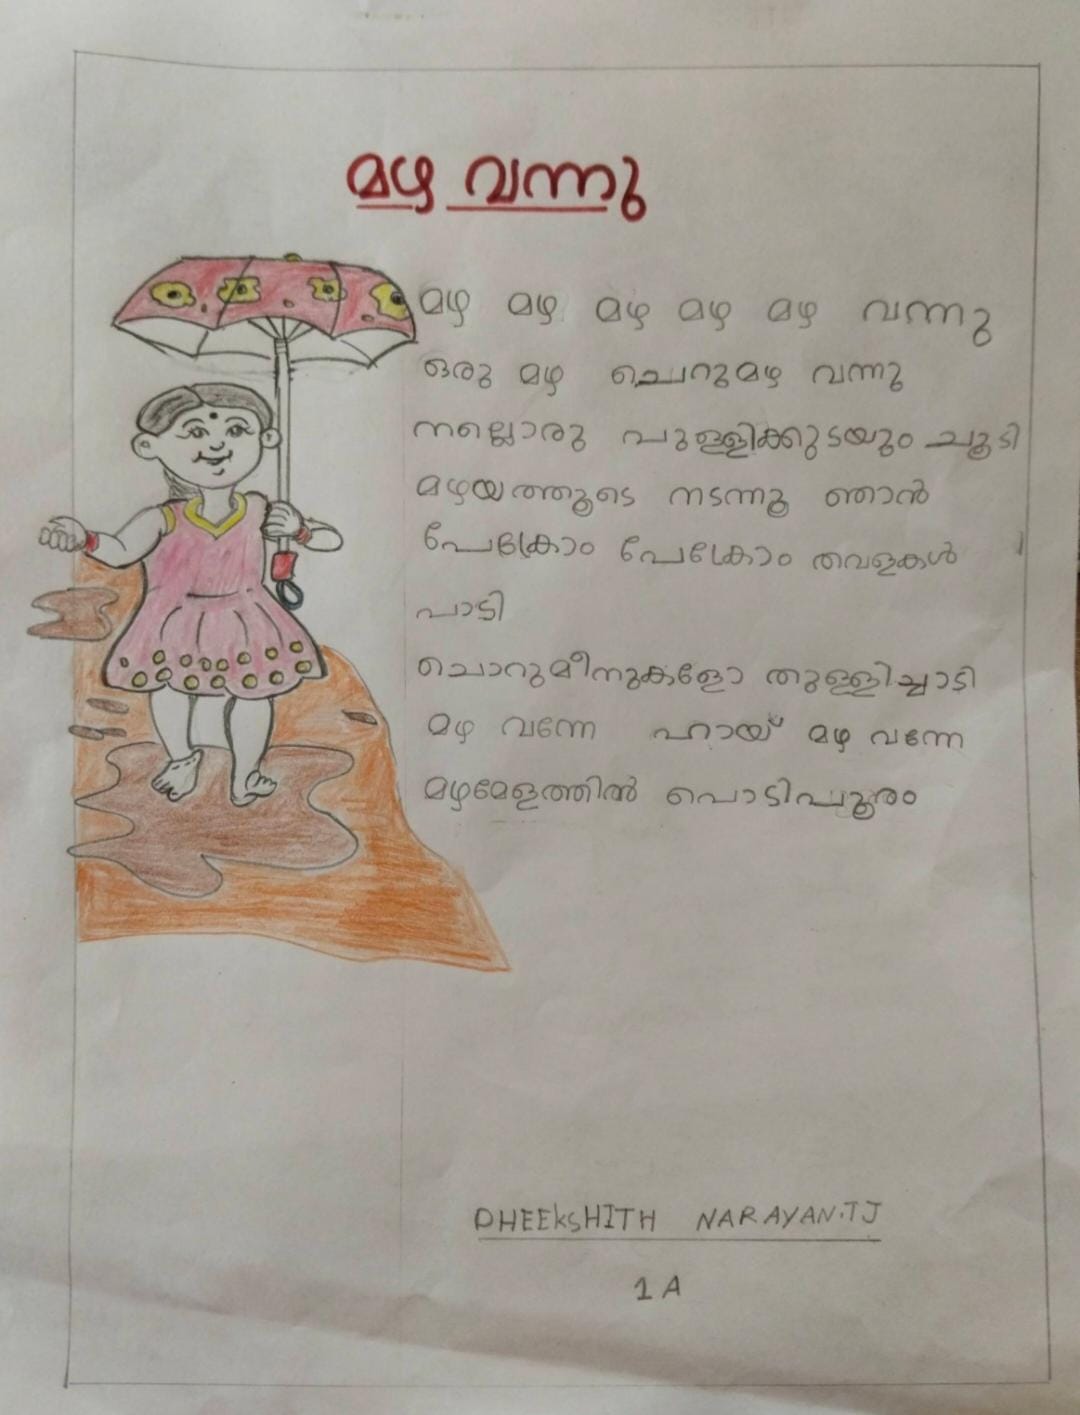 മഴ വന്നു
മഴ മഴ മഴ മഴ മഴ വന്നു
ഒരു മഴ ചെറുമഴ വന്നു
നല്ലൊരു പുള്ളിക്കുടയും ചൂടി
മഴയത്തൂടെ നടന്നൂ ഞാൻ
പേക്രോം പേക്രോം തവളകൾ
പാടി
ചൊറുമീനുകളോ തുള്ളിച്ചാടി
മഴ വന്നേ ഹായ് മഴ വന്നേ
മഴമേളത്തിൽ പൊടിപൂരം
DHEEkSHITH NARAYAN.TJ
1 A